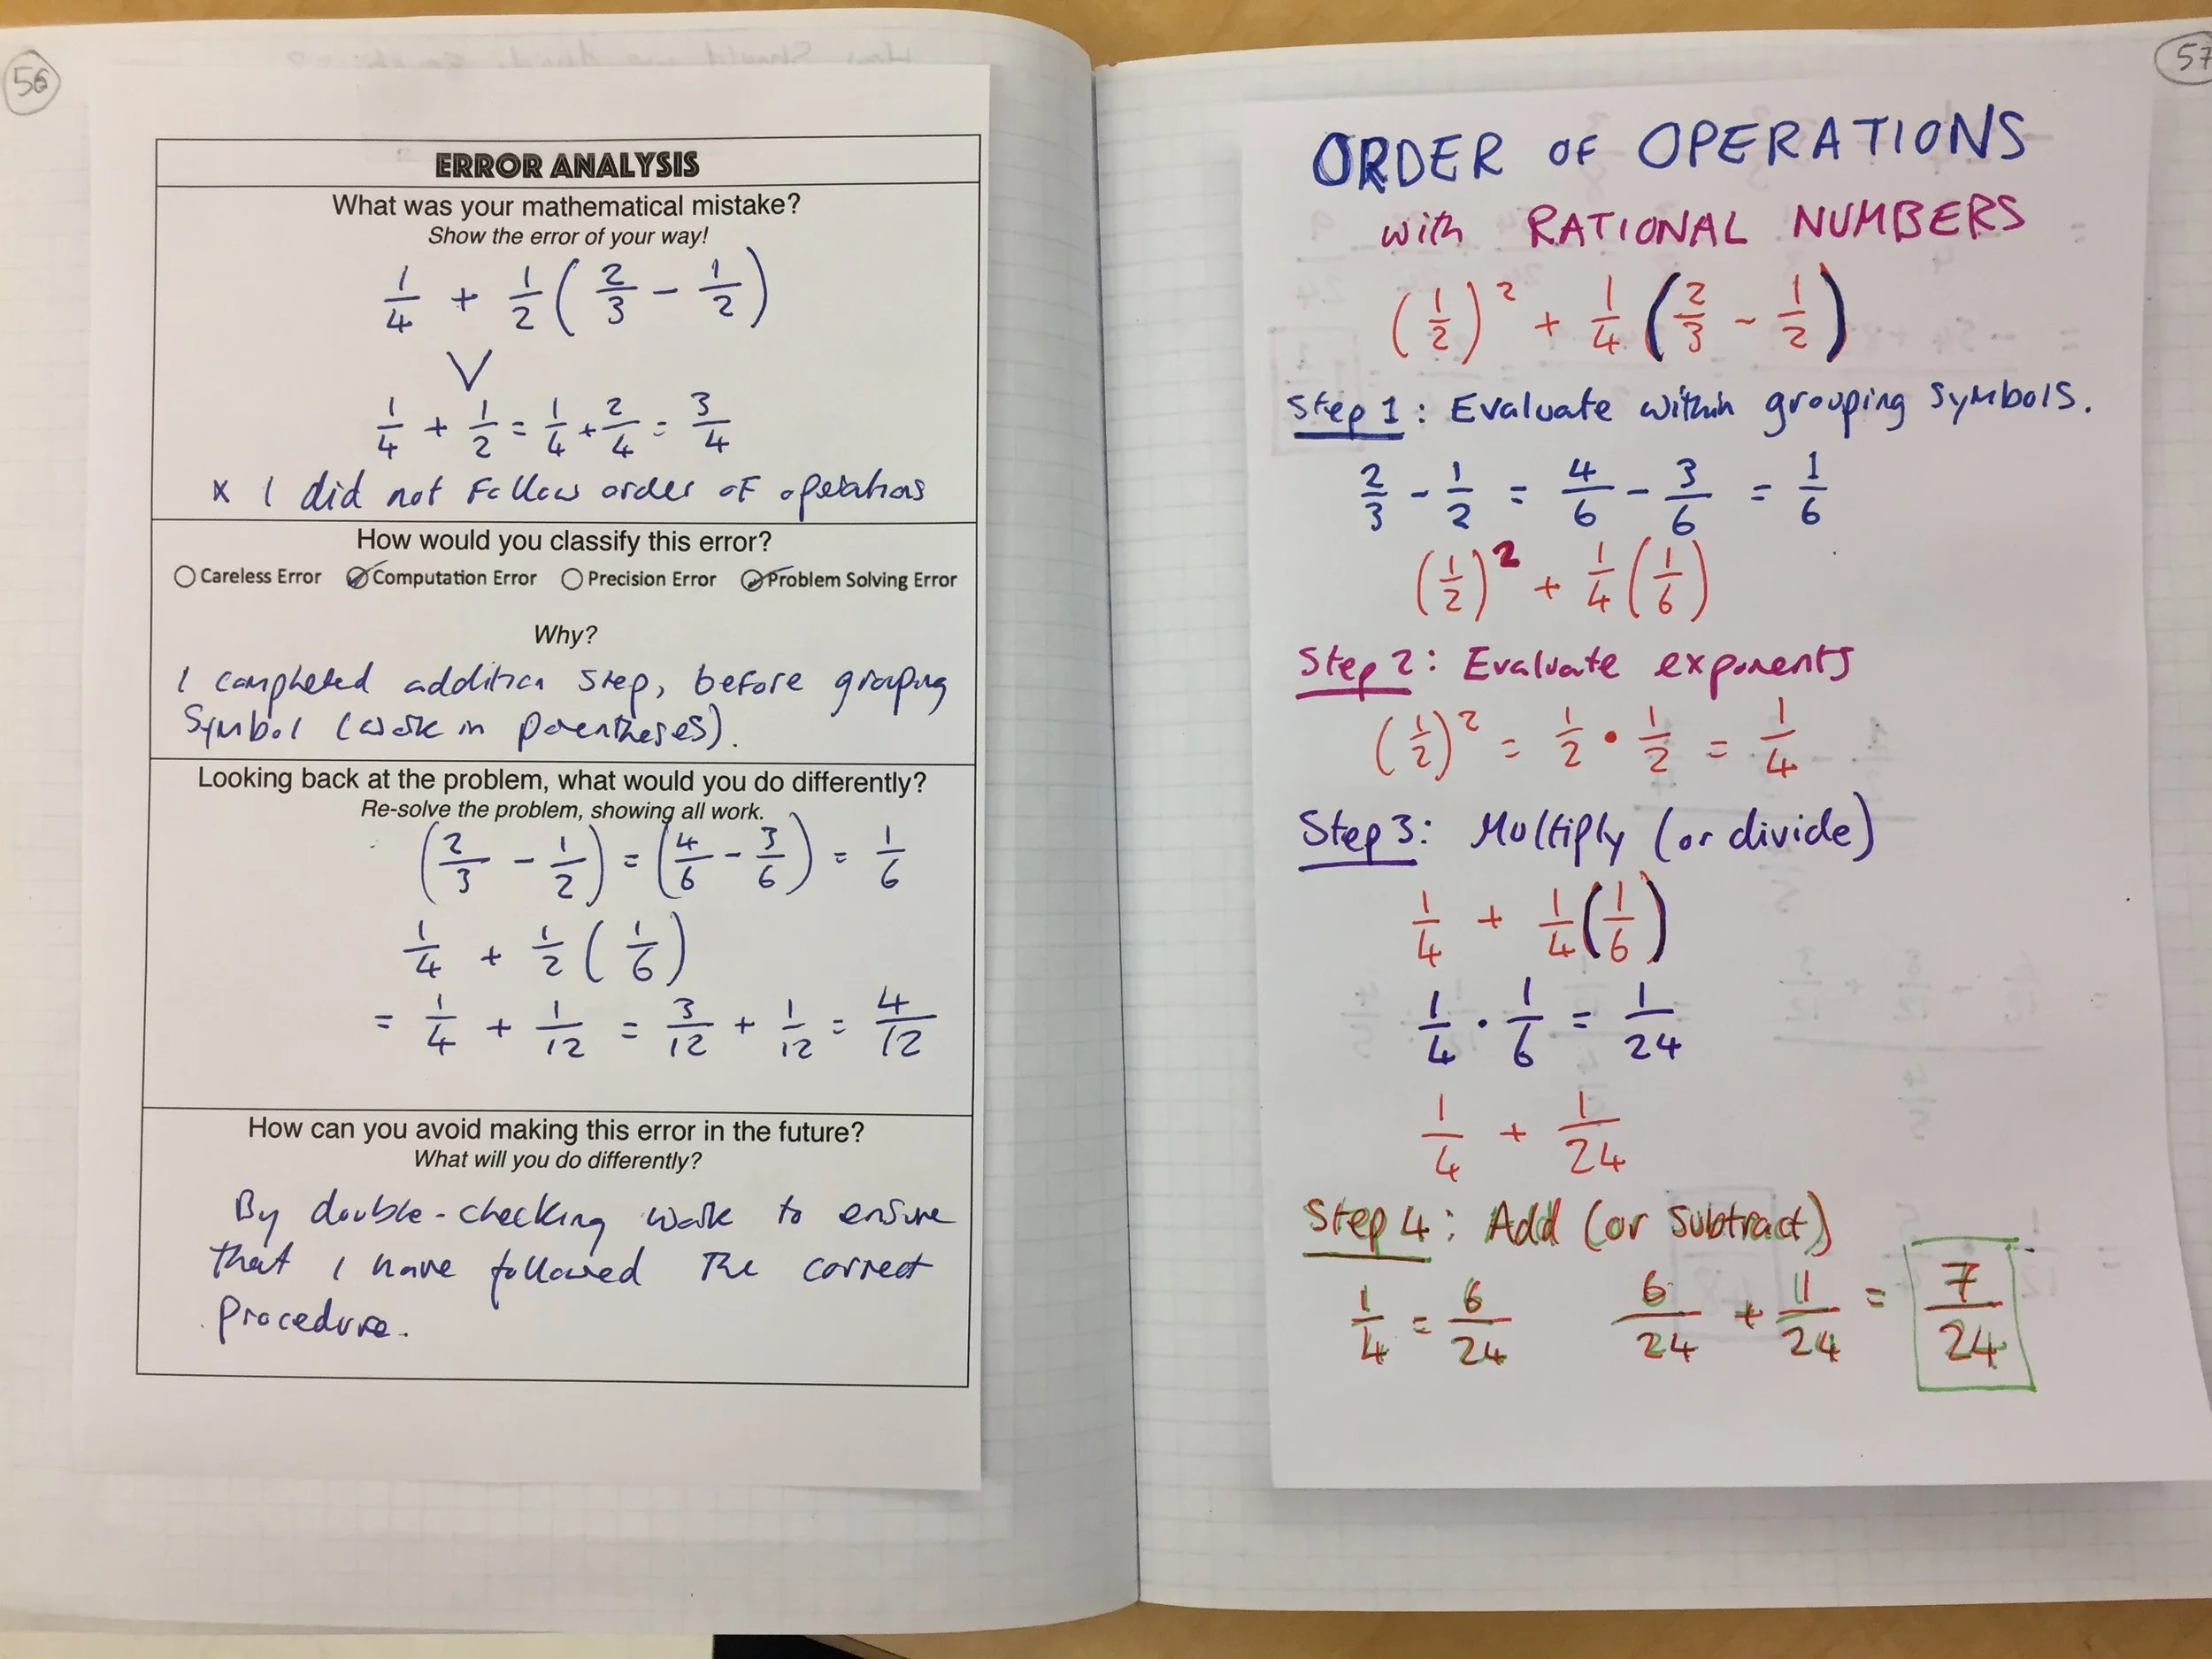 56
ERROR ANALYSIS
What was your mathematical mistake?
Show the error of your way!
1/4 + 1/2 ( 2/3 - 1/2 )
V
1/4 + 1/2 = 1/4 + 2/4 = 3/4
x I did not follow order of operations
How would you classify this error?
Careless Error Computation Error Precision Error Problem Solving Error
Why?
I completed addition step, before grouping
symbol (work in parentheses).
Looking back at the problem, what would you do differently?
Re-solve the problem, showing all work.
( 2/3 - 1/2 ) = ( 4/6 - 3/6 ) = 1/6
1/4 + 1/2 ( 1/6 )
= 1/4 + 1/12 = 3/12 + 1/12 = 4/12
How can you avoid making this error in the future?
What will you do differently?
By double-checking work to ensure
that I have followed the correct
procedure.
57
ORDER OF OPERATIONS
with RATIONAL NUMBERS
(1/2)² + 1/4 ( 2/3 - 1/2 )
Step 1: Evaluate within grouping symbols.
2/3 - 1/2 = 4/6 - 3/6 = 1/6
(1/2)² + 1/4 ( 1/6 )
Step 2: Evaluate exponents
(1/2)² = 1/2 • 1/2 = 1/4
Step 3: Multiply (or divide)
1/4 + 1/4 ( 1/6 )
1/4 · 1/6 = 1/24
1/4 + 1/24
Step 4: Add (or subtract)
1/4 = 6/24 6/24 + 1/24 = 7/24